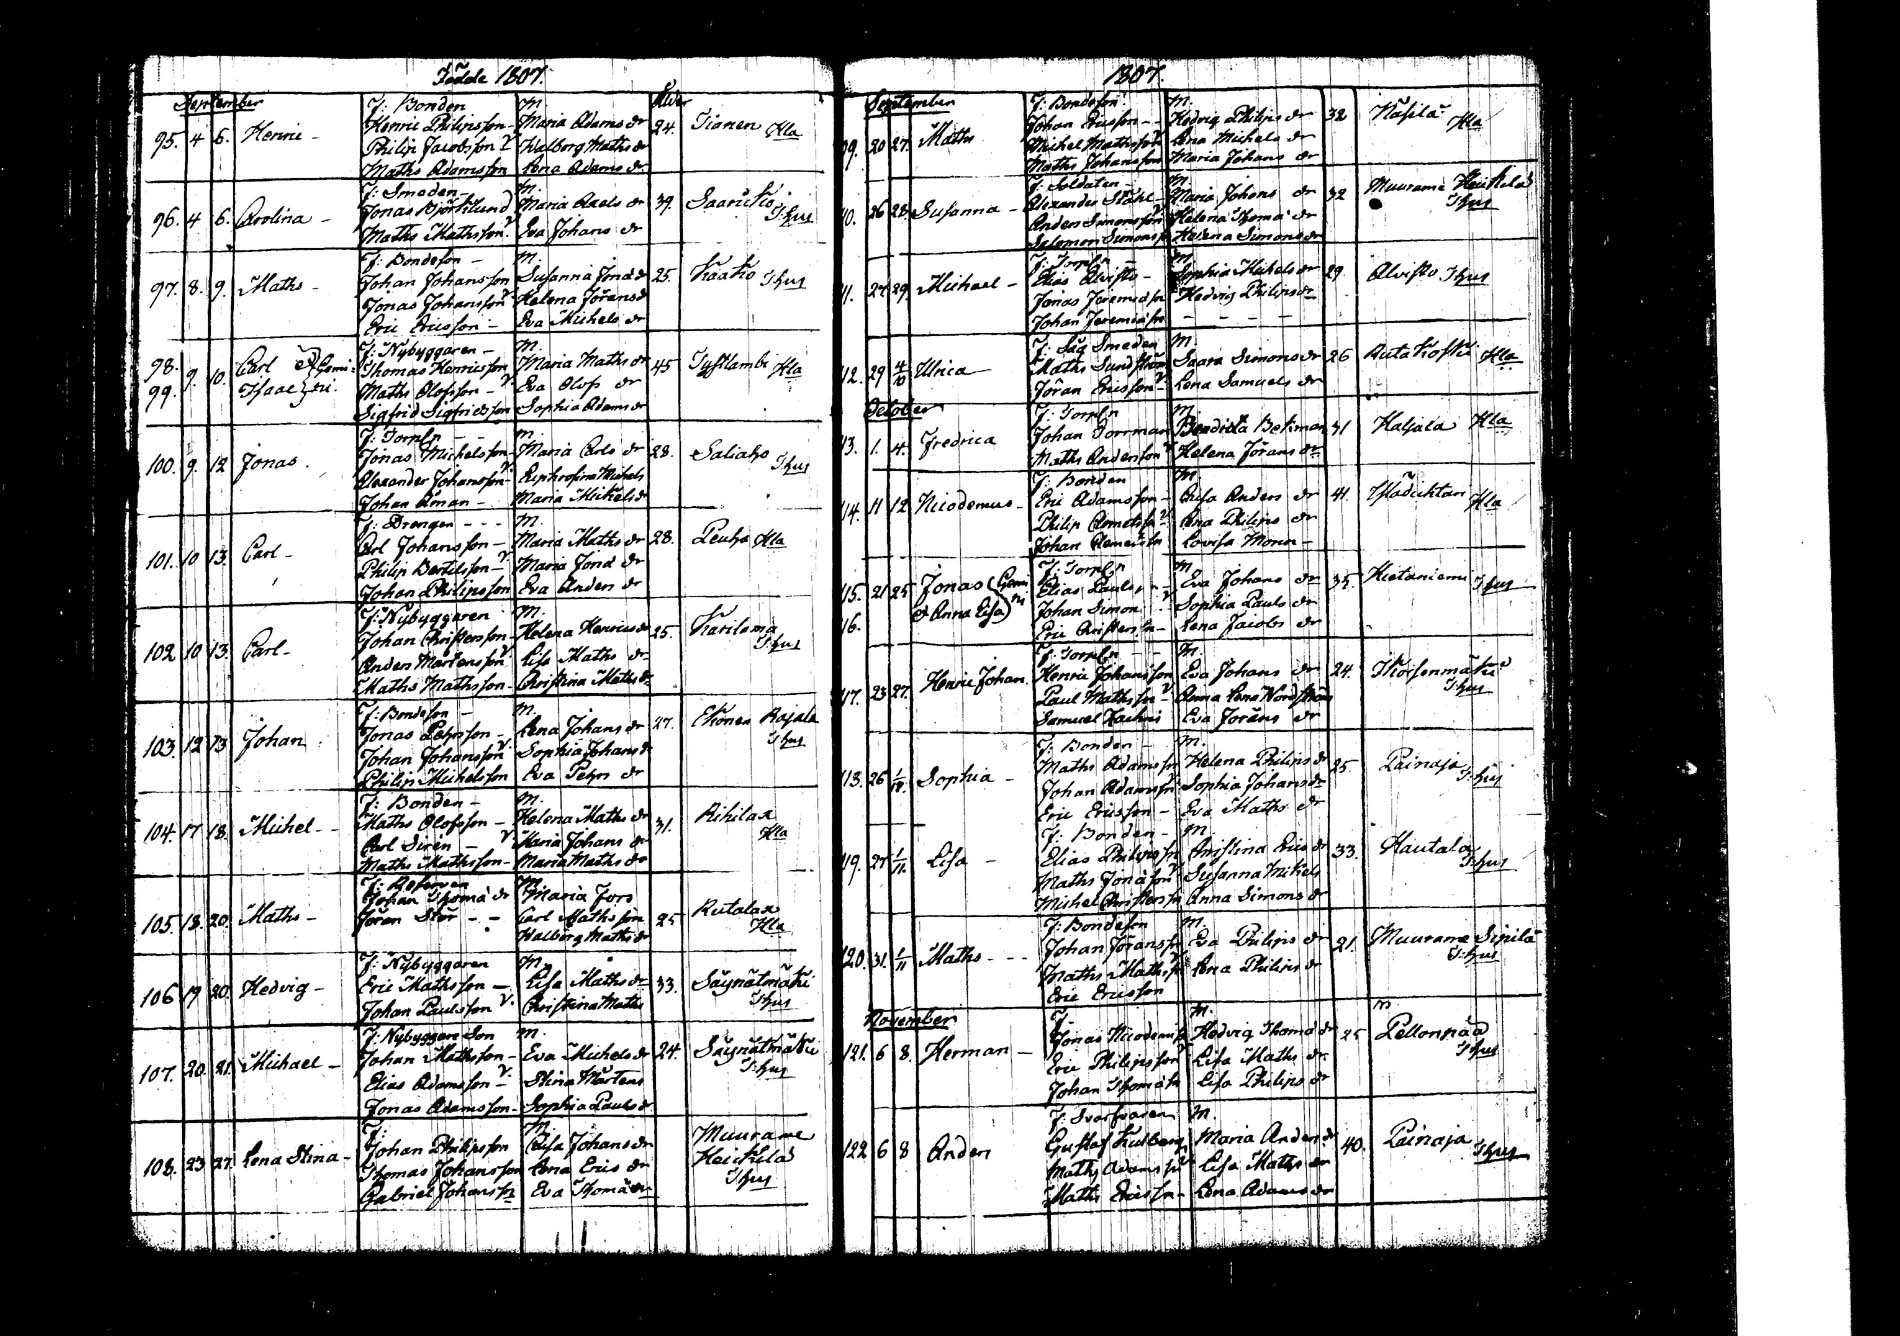 Födde 1807.
September
Ålder
95. 4 6. Henric -
F: Bonden
M.
Henric Philipsson - Maria Adams dr 24. Tionen Kla
Philip Jacobsson Walborg Maths dr
Maths Adamsson Lena Adams dr
96. 4 6. Carolina -
F: Smeden -
M.
Jonas Björklund Maria Axels dr 39. Thus
Maths Mathsson Eva Johans dr
97. 8. 9. Maths -
F: Bondeson -
M.
Johan Johansson Susanna Jona dr 25. Kaako Thus
Jonas Johansson Helena Jörans dr
Eric Ericsson - Eva Michels dr
98. 99. 9. 10. Carl & Isaac Gemini
F: Nybyggaren -
M.
Thomas Henricsson Maria Maths dr 45 Kla
Maths Olofsson - Eva Olofs dr
Sigfrid Sigfridsson Sophia Adams dr
100. 9. 12 Jonas.
F: Torpkn
M.
Jonas Michelsson - Maria Carls dr 28. Saliaho Thus
Alexander Johansson - Euphrosina Michels
Johan Öman - Maria Michels dr
101. 10 13. Carl -
F: Drengen
M.
Carl Johansson - Maria Maths dr 28. Peuha Kla
Philip Bertilsson - Maria Jona dr
Johan Philipsson Eva Anders dr
102 10 13. Carl -
F: Nybyggaren
M.
Johan Christersson - Helena Henrics dr 25. Karilama Thus
Anders Mårtensson Lisa Maths dr
Maths Mathsson - Christina Maths dr
103. 12 13 Johan
F: Bondeson -
M.
Jonas Pehrsson - Lena Johans dr 27. Ekonen Rajala Thus
Johan Johansson Sophia Johans dr
Philip Michelsson Eva Pehrs dr
104. 17 18. Michel -
F: Bonden -
M.
Maths Olofsson - Helena Maths dr 31. Kla
Carl Siren - Maria Johans dr
Maths Mathsson - Maria Maths dr
105. 18. 20. Maths -
M.
Johan Thoma Maria Fors
Jören Stör - - Carl Mathsson 25 Rutalax Kla
Walborg Maths dr
106 19 20. Hedvig -
F: Nybyggaren
M.
Eric Mathsson - Lisa Maths dr 33. Säynätmäki Thus
Johan Paulsson Christina Maths
107. 20. 21. Michael -
F: Nybyggare Son
M.
Johan Mathsson - Eva Michels dr 24. Säynätmäki Thus
Elias Adamsson - Stina Mårtens
Jonas Adamsson - Sophia Pauls dr
108. 23 27. Lena Stina -
F:
M.
Johan Philipsson Caisa Johans dr Muurame Heickilä Thus
Thomas Johansson Lena Erics dr
Gabriel Johanss Eva Thoma dr
1807.
September
09. 20 27. Maths
F: Bondeson
M.
Johan Ericsson - - Hedvig Philips dr 32 Kla
Michel Mathsson Lena Michels dr
Maths Johansson Maria Johans dr
10. 26 28 Susanna -
F: Soldaten -
M.
Alexander Ståhl - Maria Johans dr 32 Muurame Heickilä Thus
Anders Simonsson Helena Thoma dr
Salomon Simons Helena Simons dr
11. 27 29. Michael -
F: Torpkn
M.
Elias Alvisto - Sophia Michels dr 29. Alvisto Thus
Jonas Jeremias Hedvig Philips dr
Johan Jeremias
12. 29 4/10 Ulrica -
F: Såg Smeden
M.
Maths Sundström Saara Simons dr 26 Kla
Jöran Ericsson - Lena Samuels dr
October
13. 1. 4. Fredrica
F: Torpkn
M.
Johan Dorrman 31 Haljala Kla
Maths Andersson Helena Jörans dr
14. 11 12 Nicodemus -
F: Bonden
M.
Eric Adamsson - Caisa Anders dr 41. Kla
Philip Lena Philips dr
Johan Lovisa
15. 16. 21 25 Jonas & Anna Lisa Gemini
F: Torpkn
M.
Elias Pauls - - Eva Johans dr 35. Hietaniemi Thus
Johan Simon Sophia Pauls dr
Eric Christers - Lena Jacobs dr
17. 23 27. Henric Johan
F: Torpkn - -
M.
Henric Johansson Eva Johans dr 24. Thus
Paul Mathsson - Anna Lena Nordström
Samuel Eva Jörans dr
18. 26 1/11. Sophia -
F: Bonden -
M.
Maths Adamsson Helena Philips dr 25. Painaja Thus
Johan Adamsson Sophia Johans dr
Eric Ericsson - Eva Maths dr
19. 27 1/11. Lisa -
F: Bonden -
M.
Elias Philips Christina Erics dr 33. Hautala Thus
Maths Jonasson Susanna Mikels
Michel Christers Anna Simons dr
120. 31. 1/11 Maths - - -
F: Bondeson
M.
Johan Jöranss Eva Philips dr 21. Muurame Sipilä Thus
Maths Maths Lena Philips dr
Eric Ericsson
November
121. 6 8. Herman -
F.
M.
Jonas Nicodem Hedvig Thoma dr 25 Pellonpää Thus
Eric Philipsson Lisa Maths dr
Johan Thoma Lisa Philips dr
122 6 8 Anders
F: Svarfvaren
M.
Gustaf Kulberg Maria Anders dr 40. Painaja Thus
Maths Adams Lisa Maths dr
Maths Ericss - Lena Adams dr